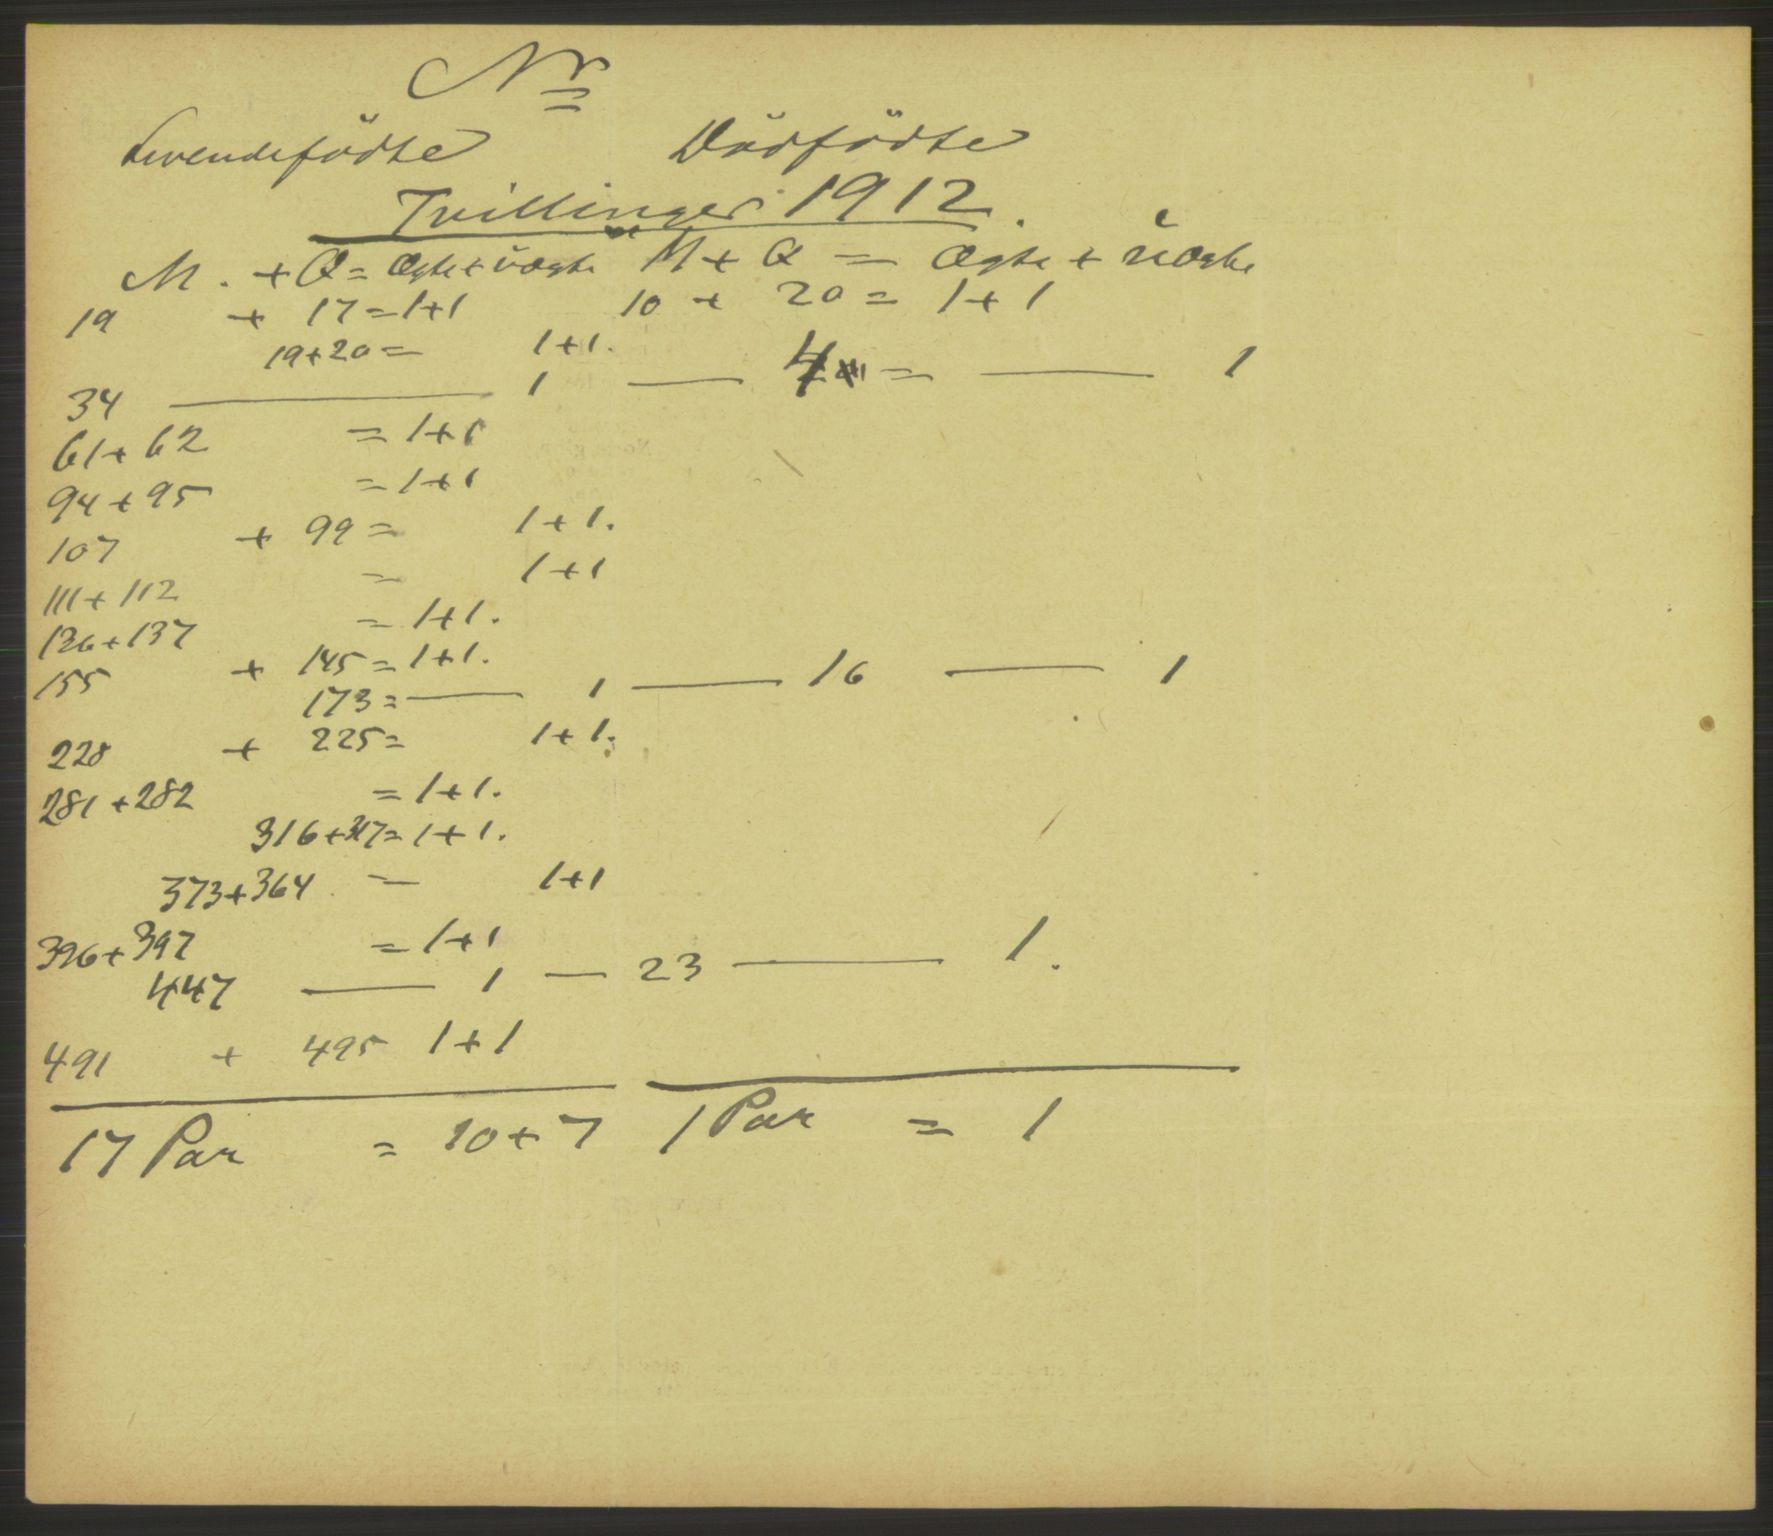 Nr
Levendefödte Dödfödte
Tvillinger 1912.
M. + Q = Ægte + uægte M + Q = Ægte + uægte
19 + 17 = 1+1 10 + 20 = 1+1
19+20 = 1+1.
34 — 1 — 4 = — 1
61+62 = 1+1
94+95 = 1+1
107 + 99 = 1+1.
111+112 = 1+1
136+137 = 1+1.
155 + 145 = 1+1.
173 = — 1 — 16 — 1
228 + 225 = 1+1.
281+282 = 1+1.
316+317 = 1+1.
373+364 = 1+1
396+397 = 1+1
447 — 1 — 23 — 1.
491 + 495 1+1
17 Par = 10+7 1 Par = 1